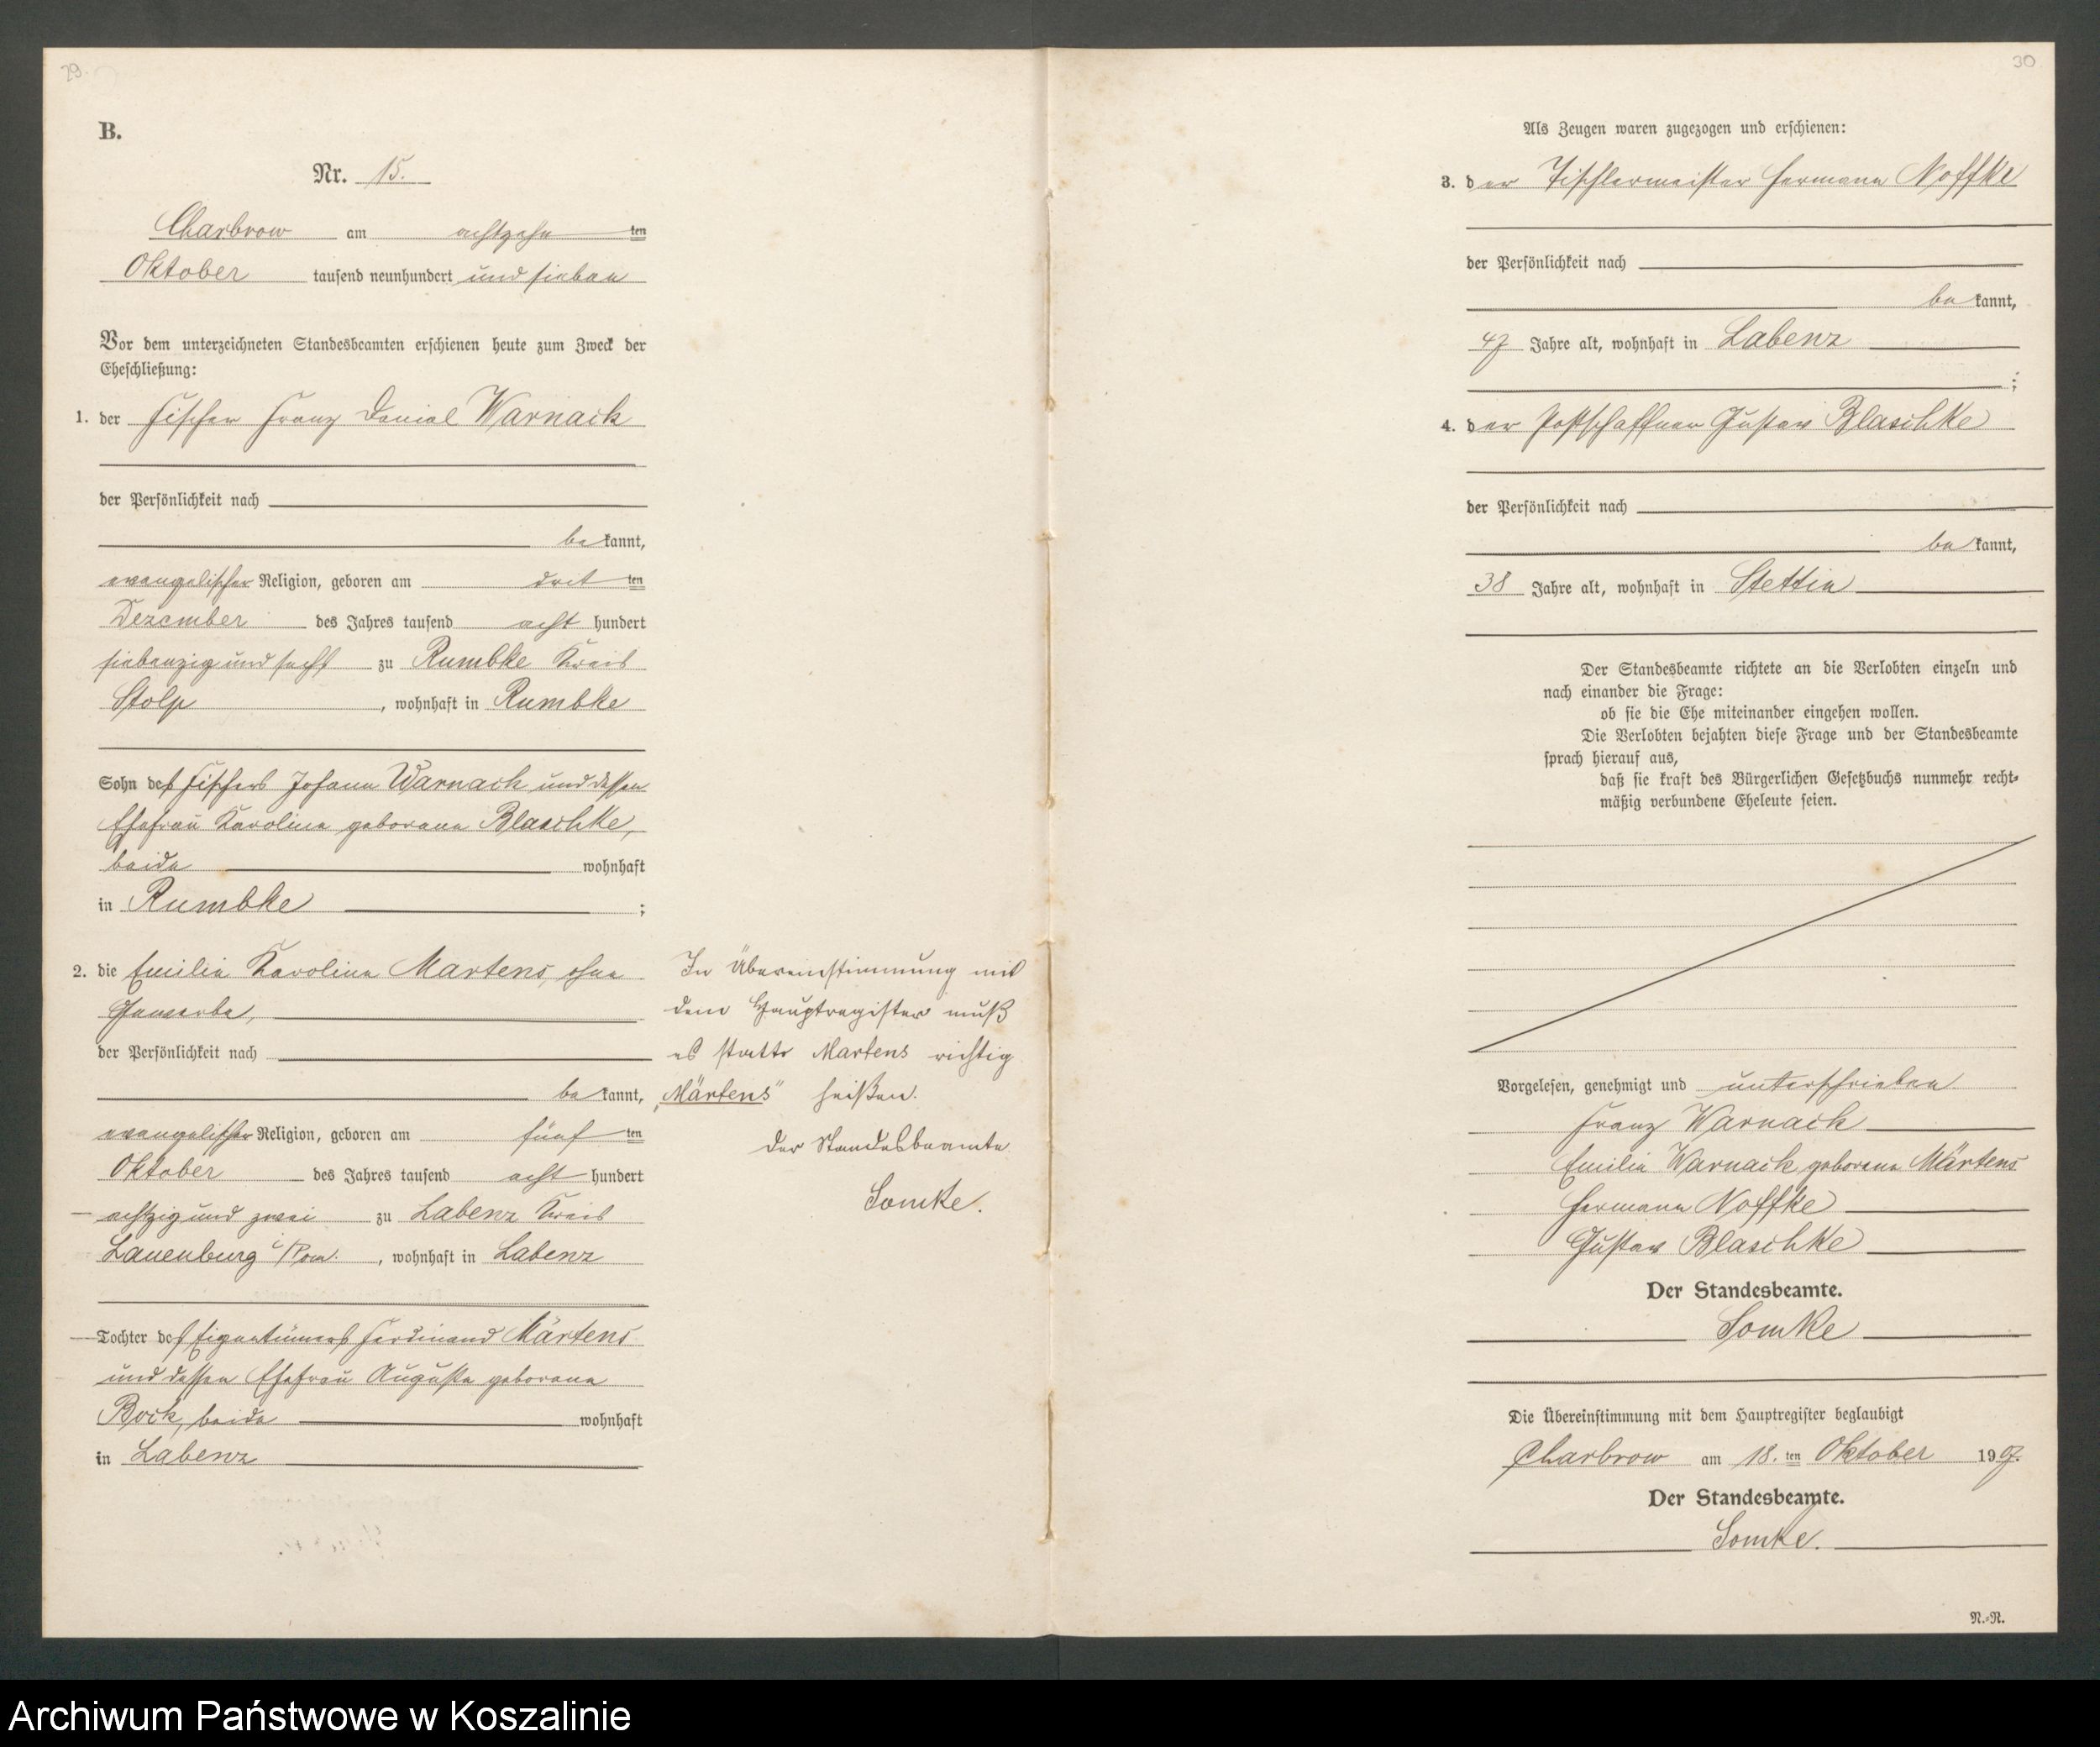 29.
B.
Nr. 15.
Charbrow am achtzehn ten
Oktober tausend neunhundert und sieben
Vor dem unterzeichneten Standesbeamten erschienen heute zum Zweck der
Eheschließung:
1. der Fischer Franz Daniel Warnack
der Persönlichkeit nach
be kannt,
evangelischer Religion, geboren am drit ten
Dezember des Jahres tausend acht hundert
siebenzig und sechs zu Rumbke Kreis
Stolp, wohnhaft in Rumbke
Sohn des Fischers Johann Warnack und dessen
Ehefrau Karoline geborene Blaschke,
beide wohnhaft
in Rumbke ;
2. die Emilie Karoline Martens, ohne
Gewerbe,
der Persönlichkeit nach
be kannt,
evangelischer Religion, geboren am fünf ten
Oktober des Jahres tausend acht hundert
achtzig und zwei zu Labenz Kreis
Lauenburg i/Pom., wohnhaft in Labenz
Tochter des Eigentümers Ferdinand Märtens
und dessen Ehefrau Auguste geborene
Bock, beide wohnhaft
in Labenz
In Übereinstimmung mit
dem Hauptregister muß
es statt Martens richtig
„Märtens" heißen.
Der Standesbeamte.
Somke.
30
Als Zeugen waren zugezogen und erschienen:
3. der Tischlermeister Hermann Noffke
der Persönlichkeit nach
be kannt,
47 Jahre alt, wohnhaft in Labenz
;
4. der Postschaffner Gustav Blaschke
der Persönlichkeit nach
be kannt,
38 Jahre alt, wohnhaft in Stettin
Der Standesbeamte richtete an die Verlobten einzeln und
nach einander die Frage:
ob sie die Ehe miteinander eingehen wollen.
Die Verlobten bejahten diese Frage und der Standesbeamte
sprach hierauf aus,
daß sie kraft des Bürgerlichen Gesetzbuchs nunmehr recht-
mäßig verbundene Eheleute seien.
Vorgelesen, genehmigt und unterschrieben
Franz Warnack
Emilie Warnack geborene Märtens
Hermann Noffke
Gustav Blaschke
Der Standesbeamte.
Somke
Die Übereinstimmung mit dem Hauptregister beglaubigt
Charbrow am 18. ten Oktober 1907.
Der Standesbeamte.
Somke.
N.-R.
Archiwum Państwowe w Koszalinie